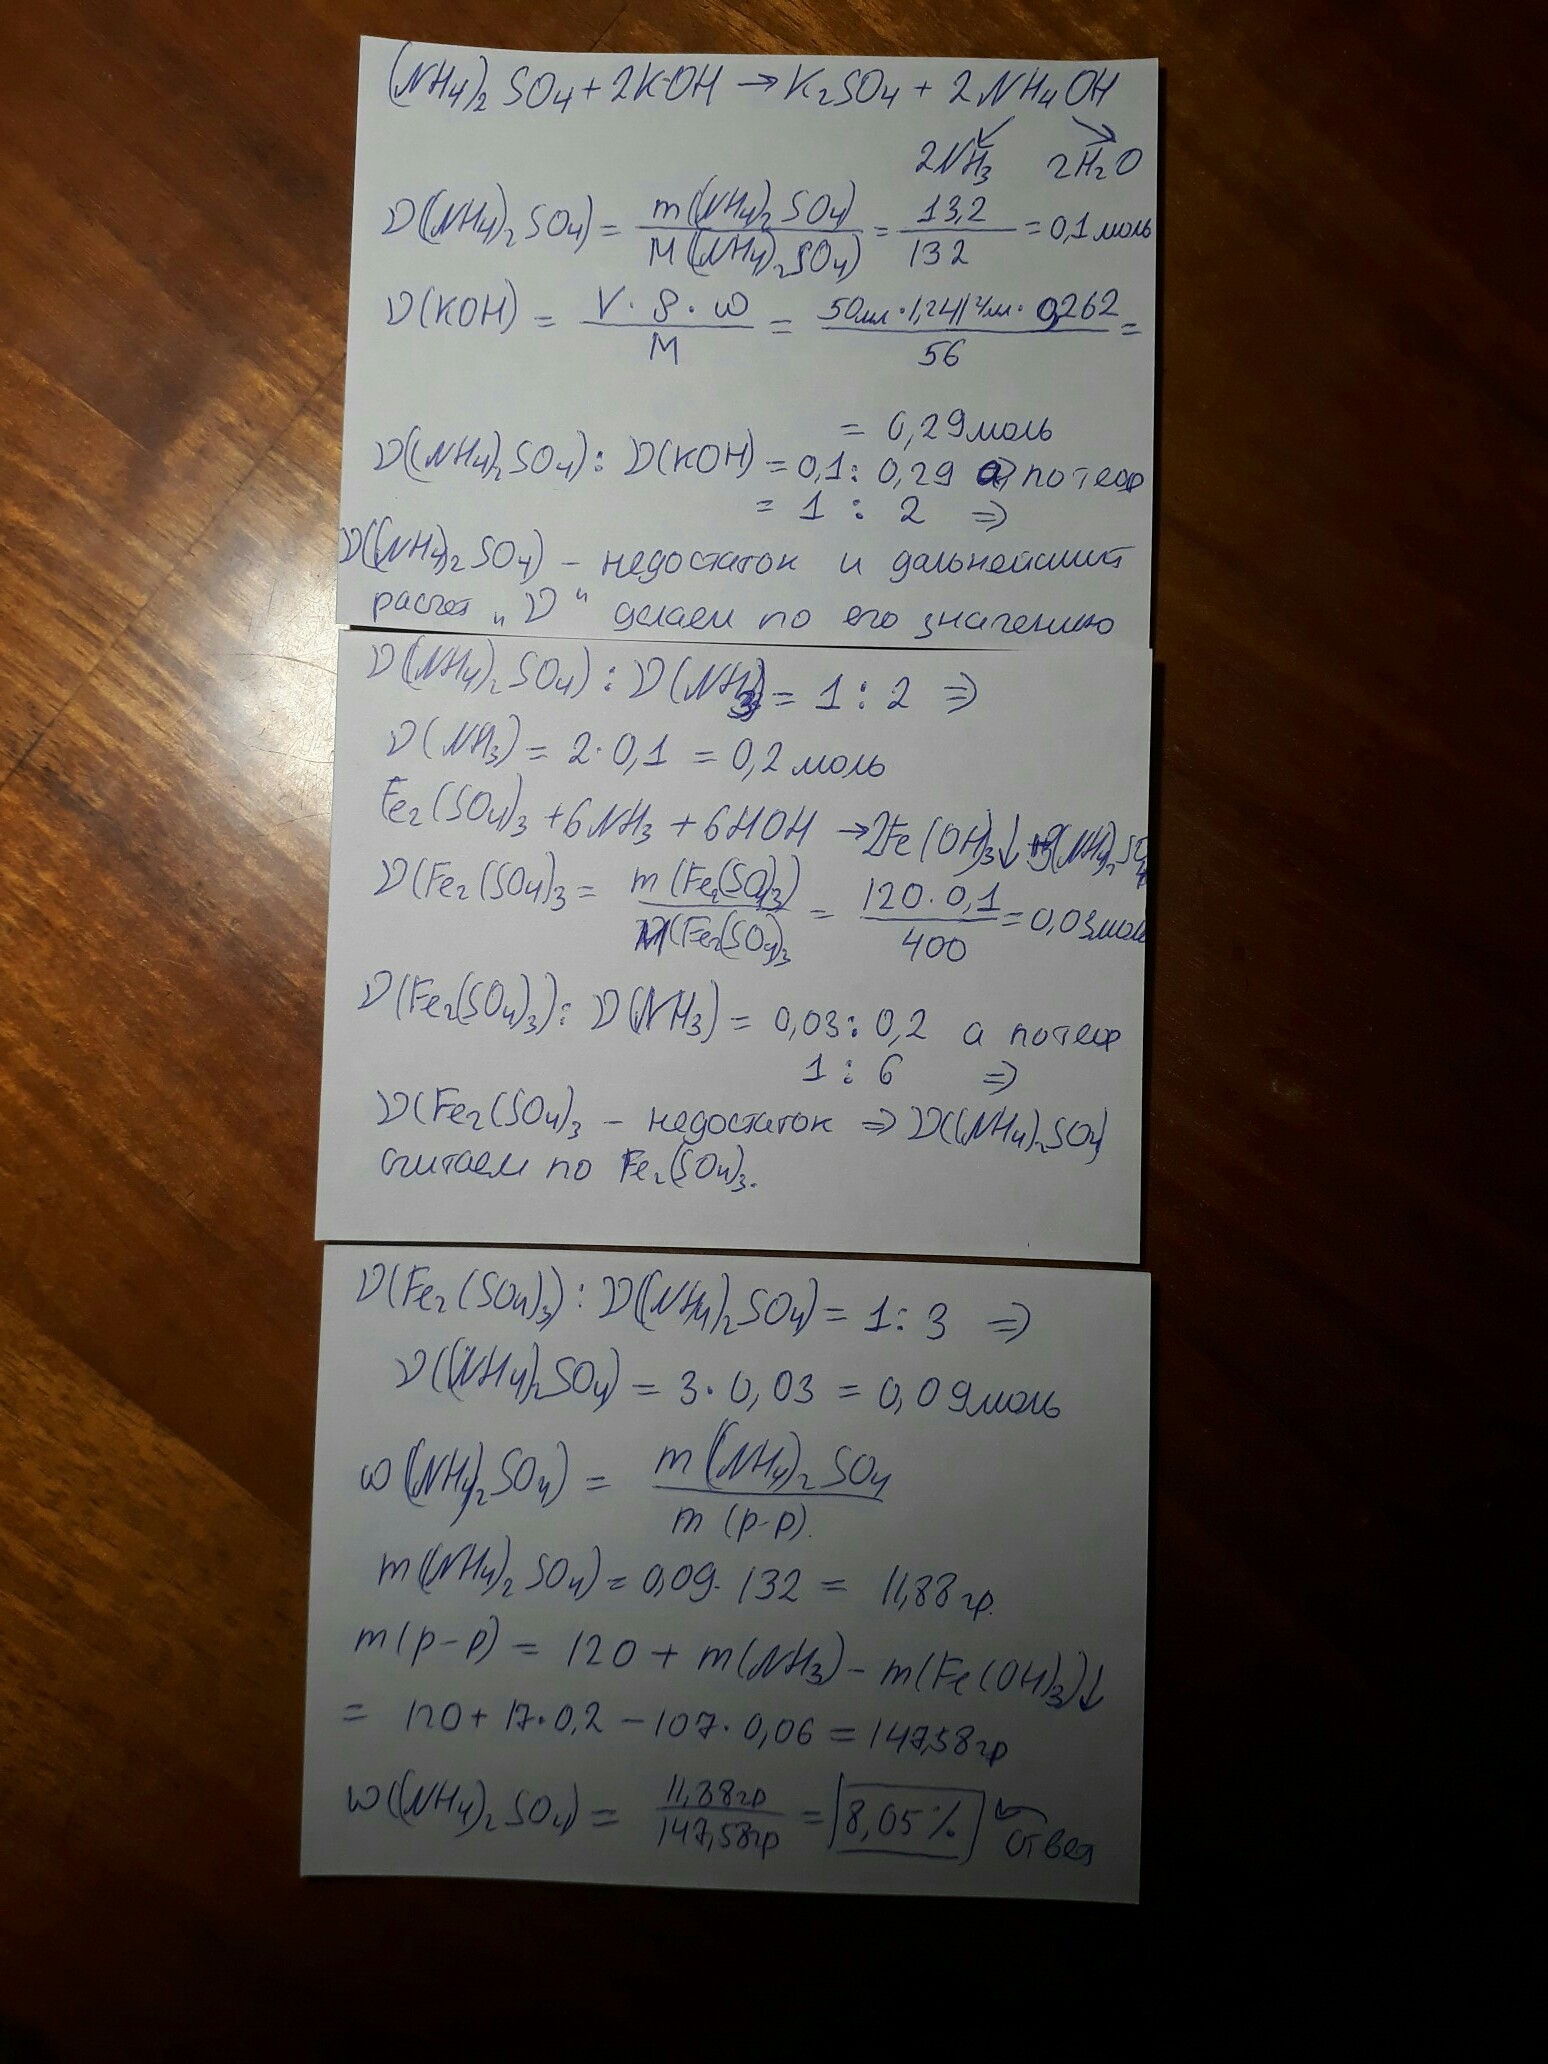 (NH4)2 SO4 + 2KOH → K2SO4 + 2NH4OH
2NH3 2H2O
ν((NH4)2SO4) = m((NH4)2SO4) / M((NH4)2SO4) = 13,2 / 132 = 0,1 моль
ν(KOH) = V · ρ · ω / M = 50мл · 1,24 г/мл · 0,262 / 56 =
= 0,29 моль
ν((NH4)2SO4) : ν(KOH) = 0,1 : 0,29 а по теор
= 1 : 2 ⇒
ν((NH4)2SO4) - недостаток и дальнейший
расчет „ν“ делаем по его значению
ν((NH4)2SO4) : ν(NH3) = 1 : 2 ⇒
ν(NH3) = 2·0,1 = 0,2 моль
Fe2(SO4)3 + 6NH3 + 6HOH → 2Fe(OH)3↓ + 3(NH4)2SO4
ν(Fe2(SO4)3 = m(Fe2(SO4)3) / M(Fe2(SO4)3 = 120·0,1 / 400 = 0,03моль
ν(Fe2(SO4)3) : ν(NH3) = 0,03 : 0,2 а по теор
1 : 6 ⇒
ν(Fe2(SO4)3 - недостаток ⇒ ν((NH4)2SO4)
считаем по Fe2(SO4)3.
ν(Fe2(SO4)3) : ν((NH4)2SO4) = 1 : 3 ⇒
ν((NH4)2SO4) = 3·0,03 = 0,09моль
ω(NH4)2SO4) = m(NH4)2SO4 / m(р-р).
m(NH4)2SO4) = 0,09·132 = 11,88 гр.
m(р-р) = 120 + m(NH3) - m(Fe(OH)3)↓
= 120 + 17·0,2 - 107·0,06 = 147,58гр
ω((NH4)2SO4) = 11,88гр / 147,58гр = 8,05% ответ